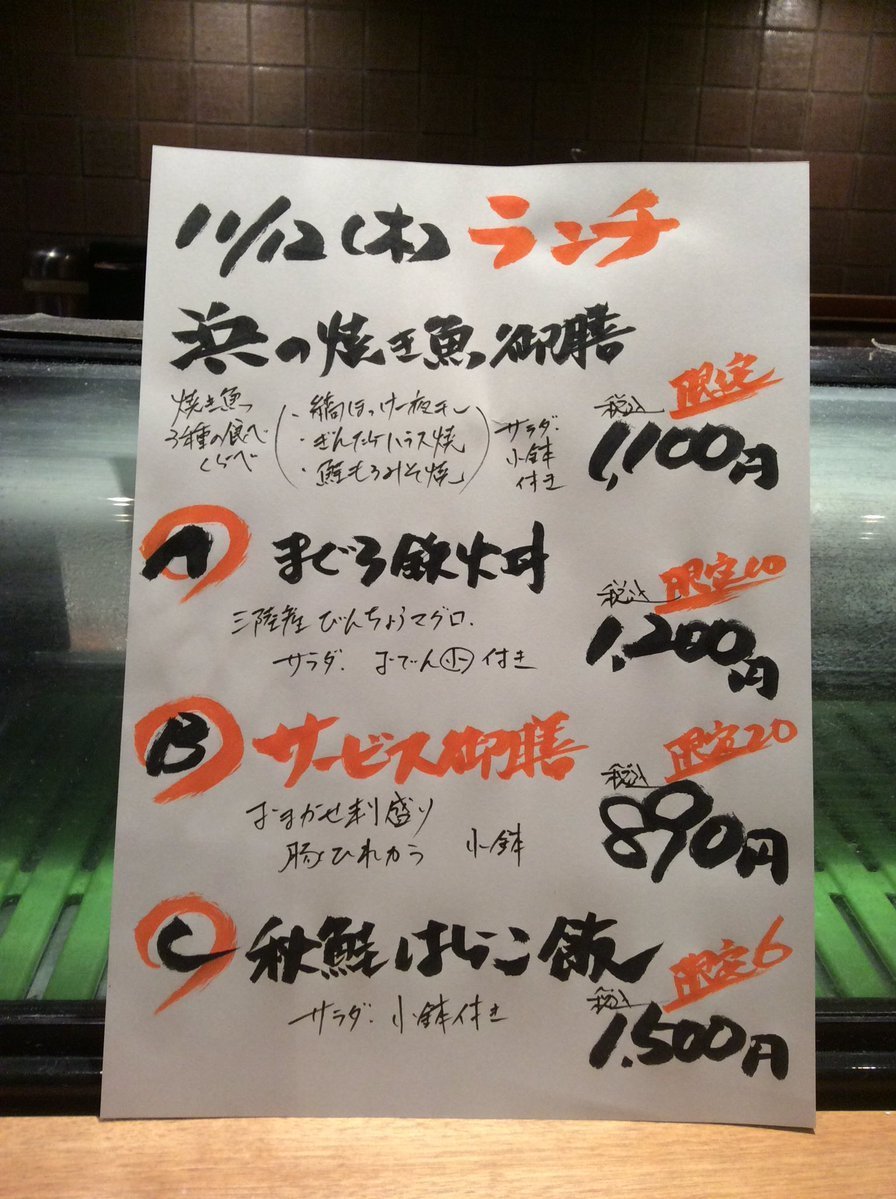 11/12(木) ランチ
浜の焼き魚御膳
限定
焼き魚
3種の食べ
くらべ
・縞ほっけ一夜干し
・ぎんだらハラス焼
・鮭もろみそ焼
サラダ・
小鉢
付き
税込
1,100円
A まぐろ鉄火丼
限定10
三陸産 びんちょうマグロ.
サラダ. おでん小付き
税込
1,200円
B サービス御膳
限定20
おまかせ刺盛り
豚ひれカツ 小鉢
税込
890円
C 秋鮭はらこ飯
限定6
サラダ. 小鉢付き
税込
1,500円